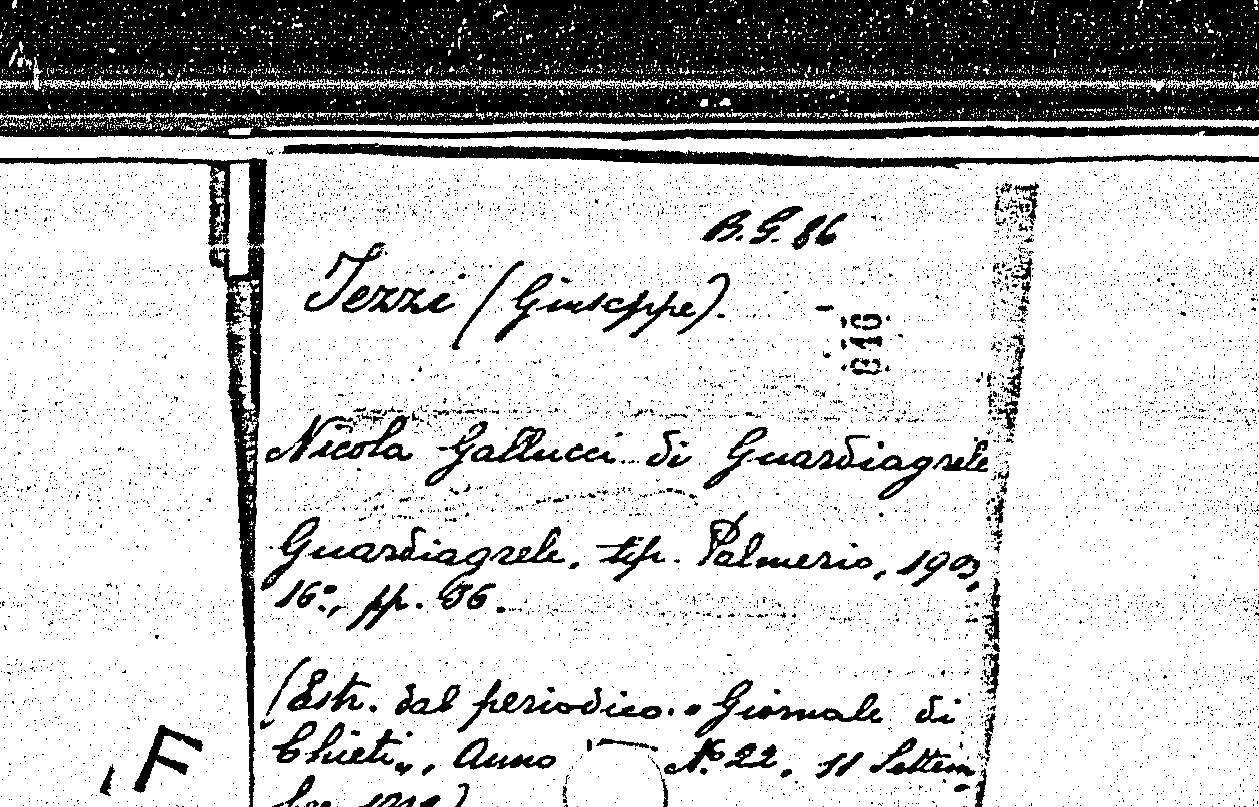 B.G. 86
Iezzi (Giuseppe).
016
Nicola Gallucci di Guardiagrele
Guardiagrele, tip. Palmerio, 1903,
16°, pp. 36.
(Estr. dal periodico "Giornale di
Chieti", Anno N.° 22, 11 Settem
F